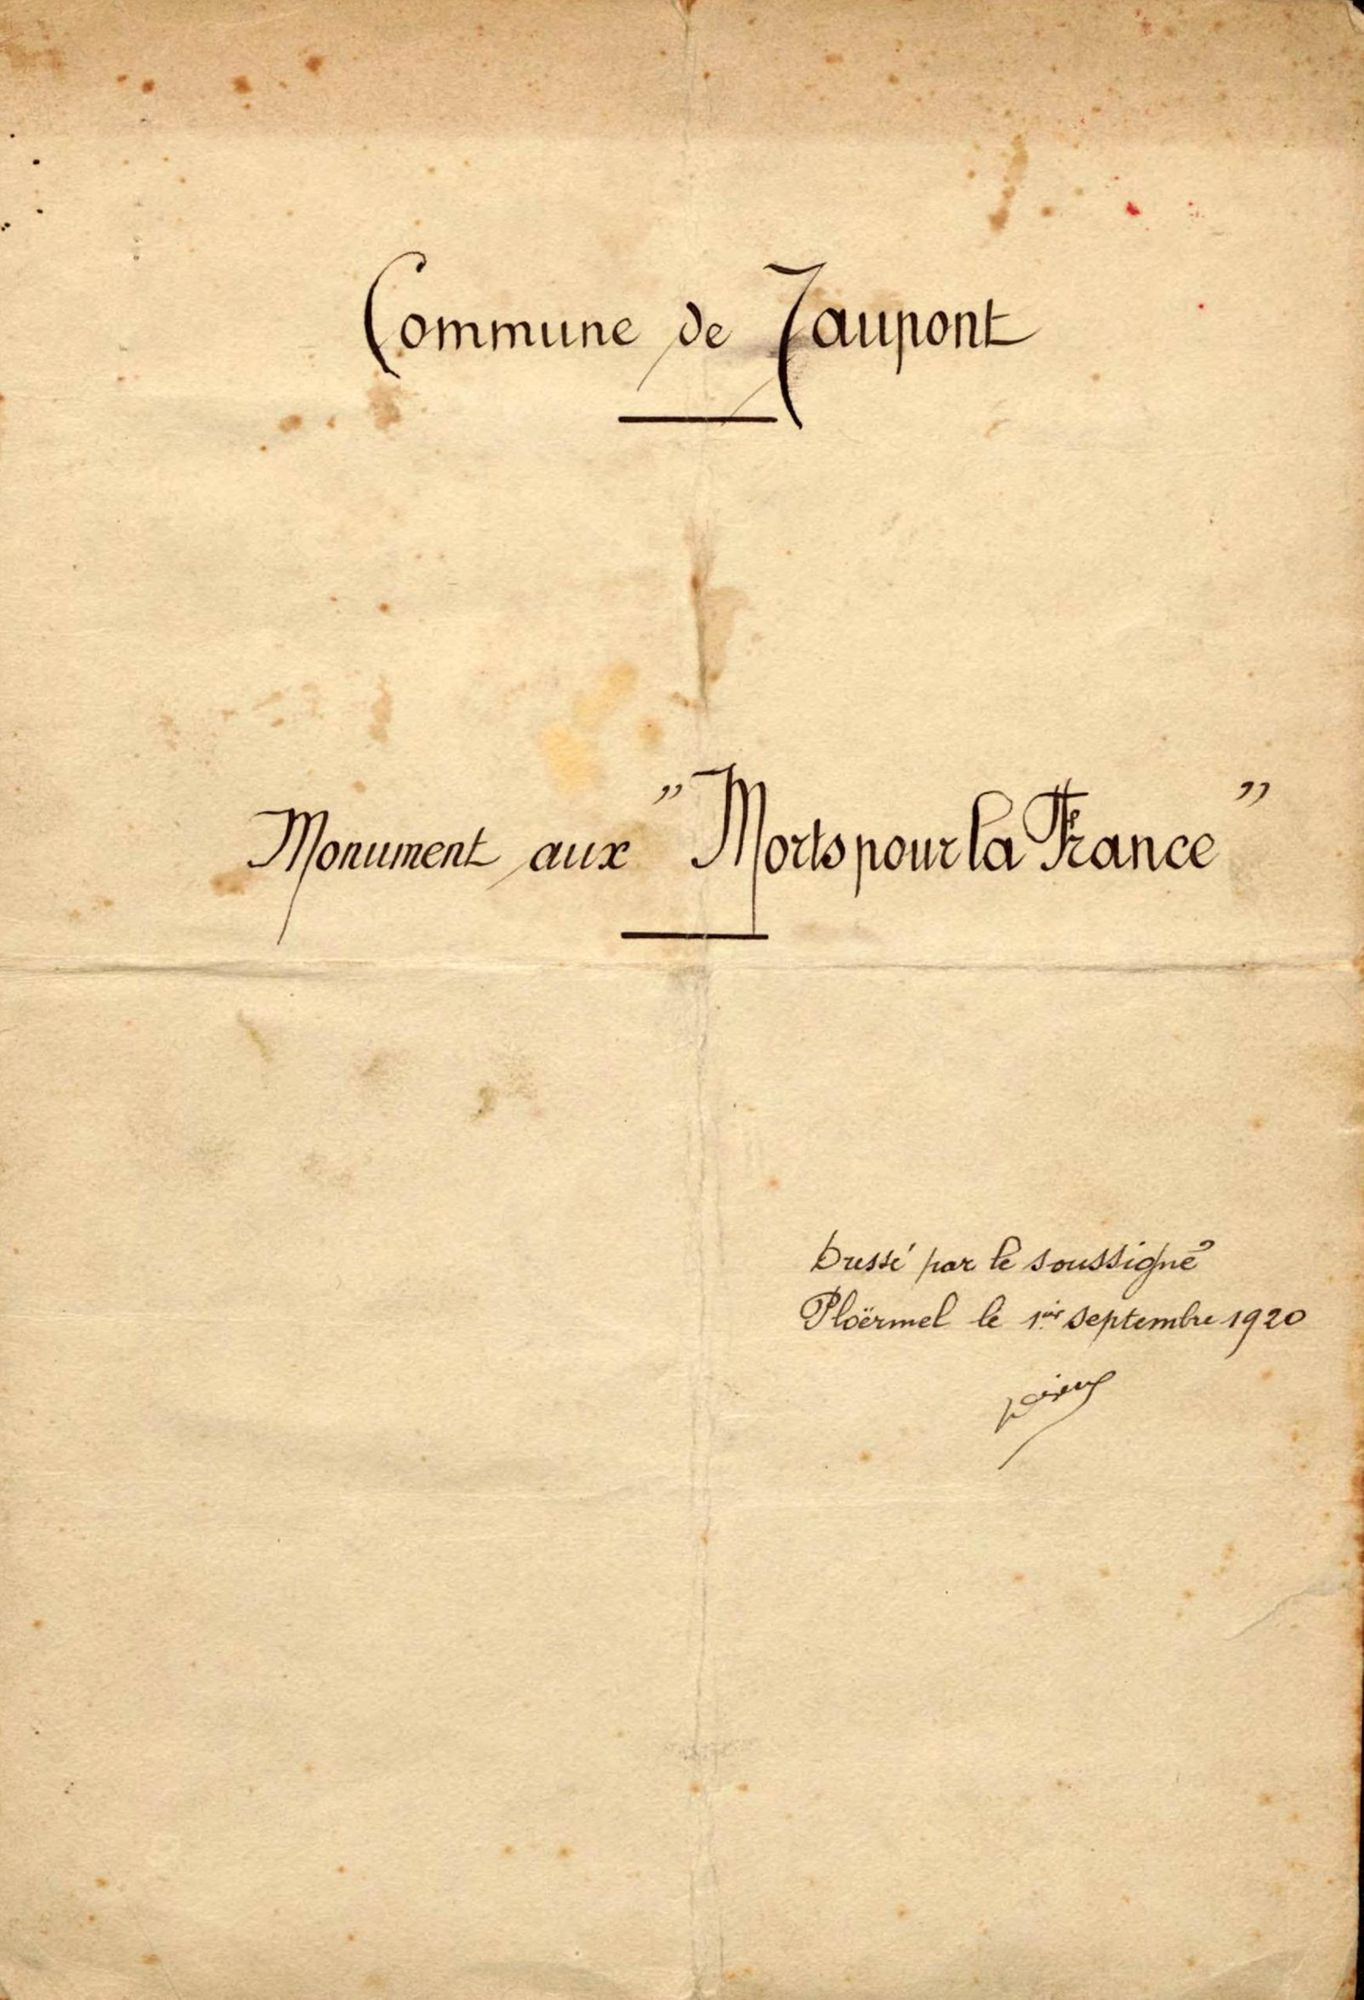 Commune de Taupont
Monument aux " Morts pour la France "
Dressé par le soussigné
Ploërmel le 1er septembre 1920